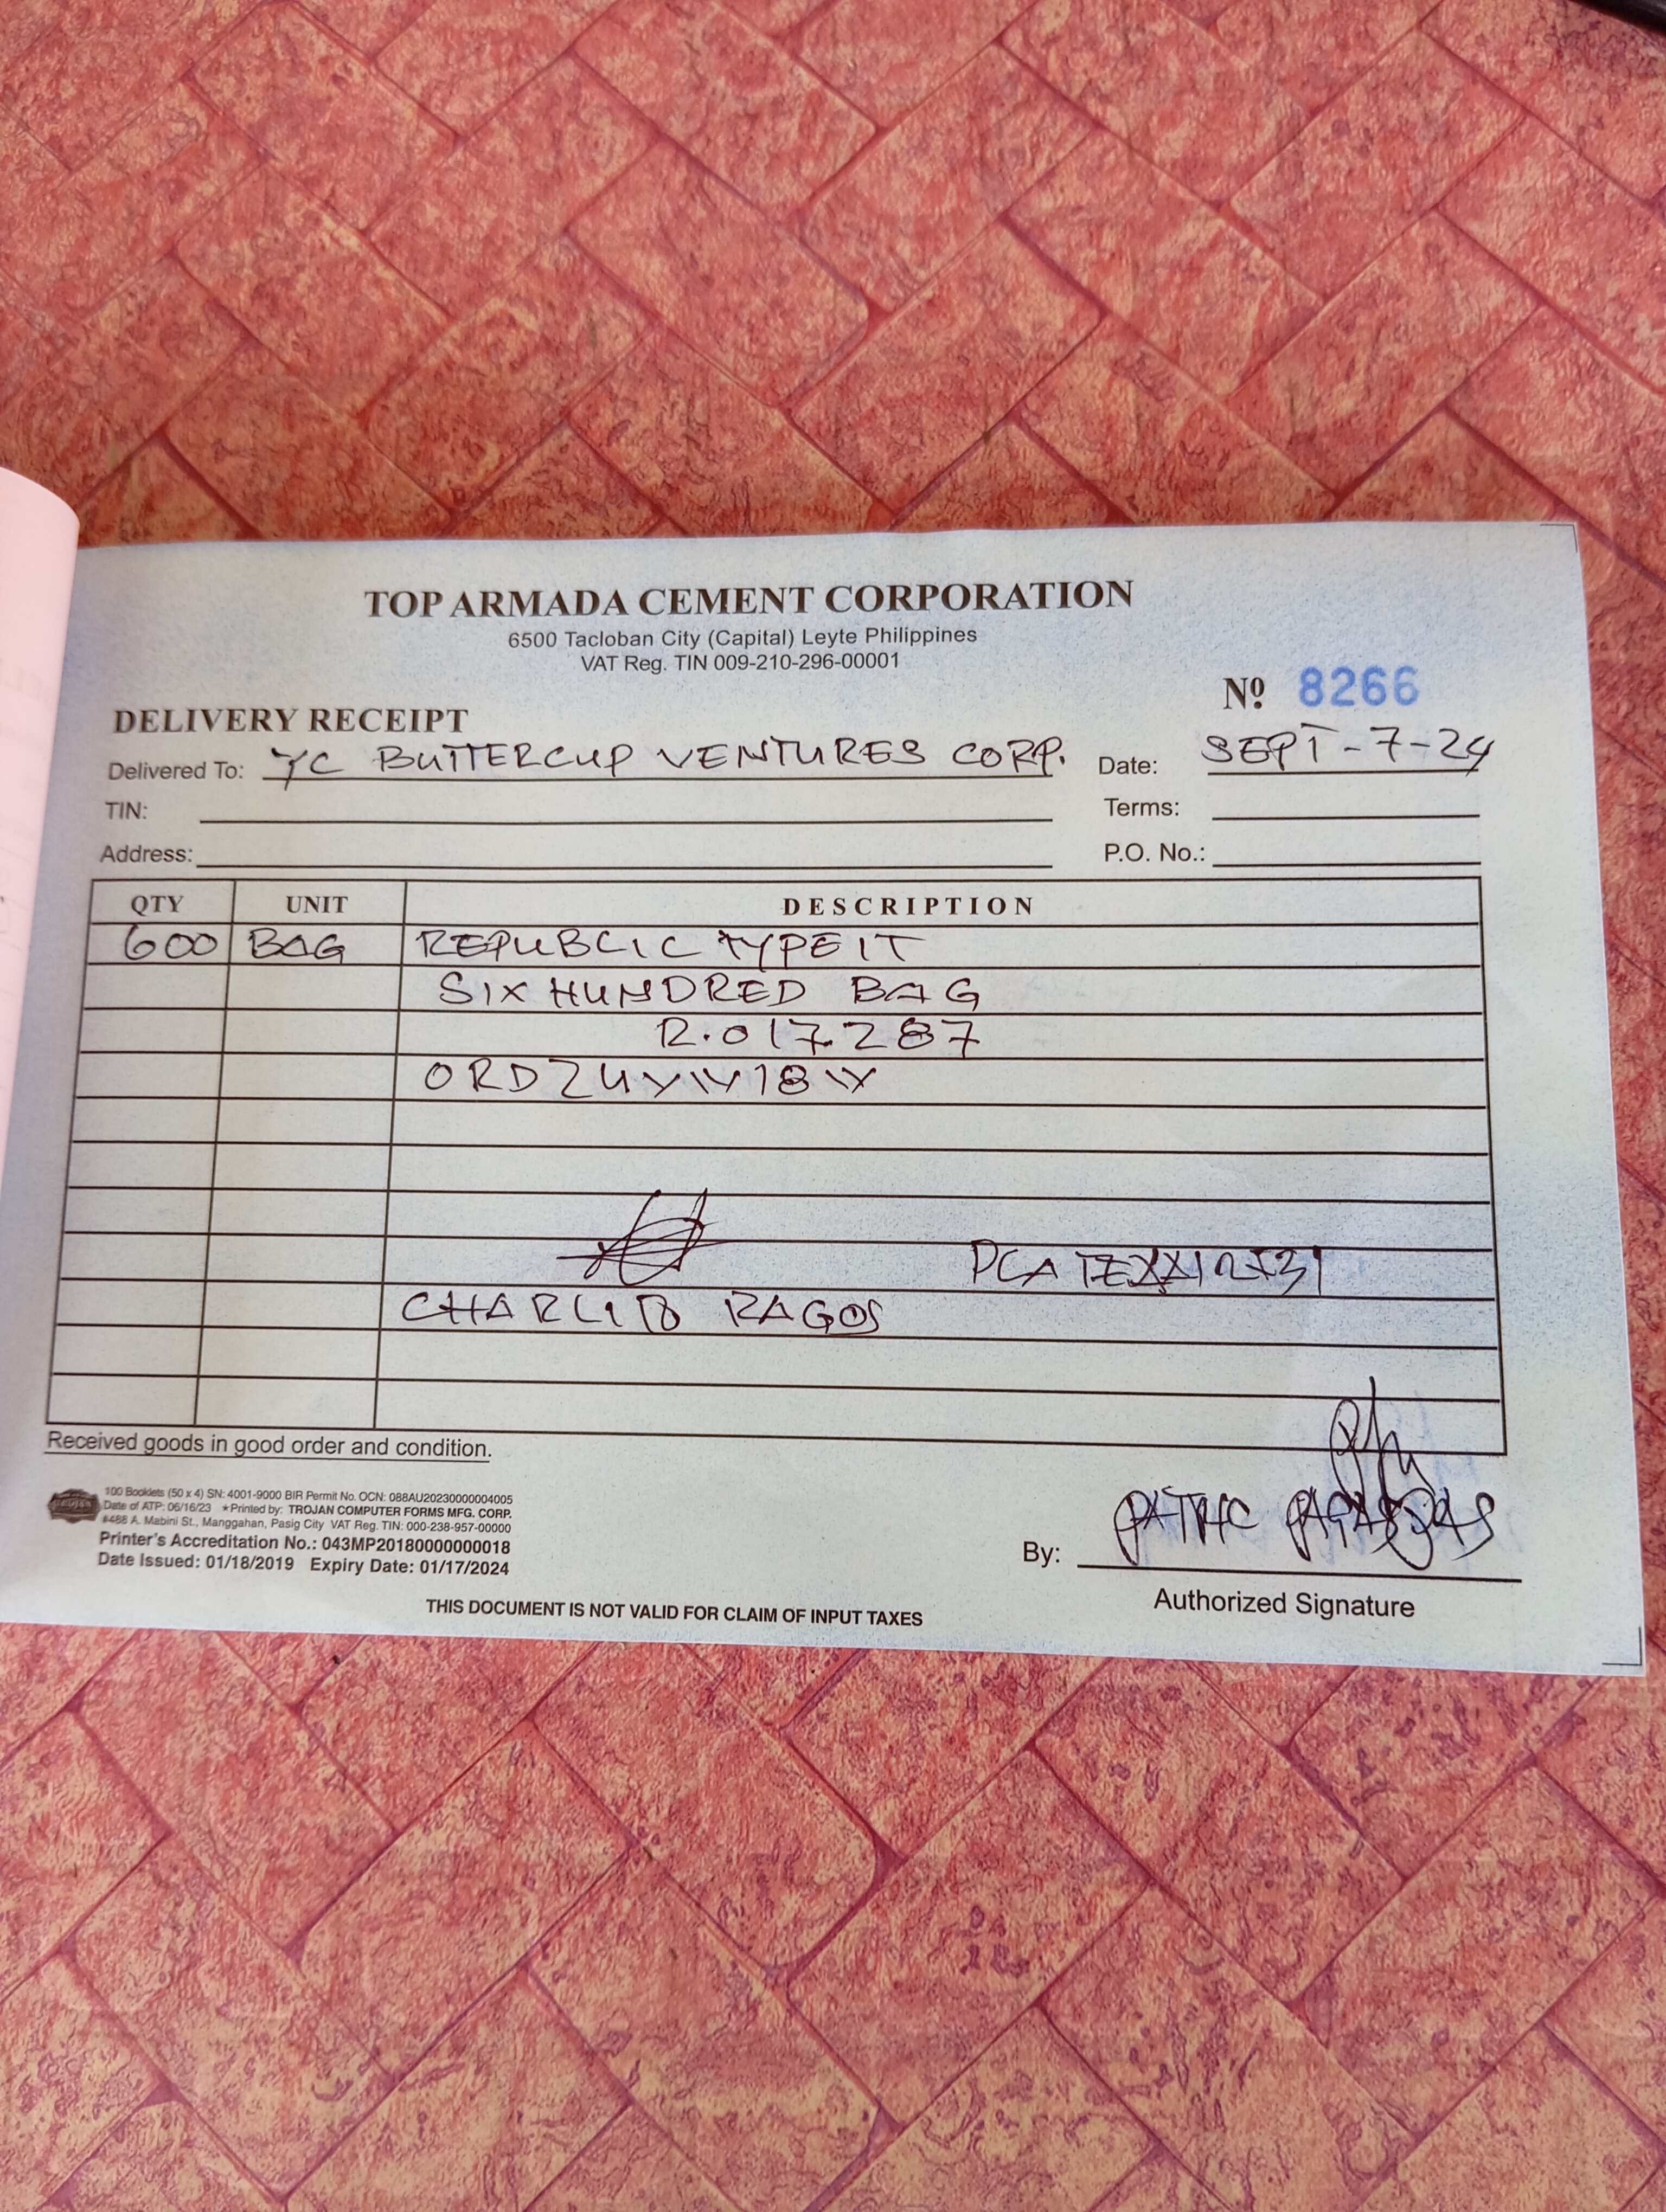 TOP ARMADA CEMENT CORPORATION
6500 Tacloban City (Capital) Leyte Philippines
VAT Reg. TIN 009-210-296-00001
Nº 8266
DELIVERY RECEIPT
Delivered To: YC BUTTERCUP VENTURES CORP. Date: SEPT-7-24
TIN: Terms:
Address: P.O. No.:
QTY UNIT DESCRIPTION
600 BAG REPUBLIC TYPE IT
SIX HUNDRED BAG
R.017287
CHARLITO RAGOS
Received goods in good order and condition.
100 Booklets (50 x 4) SN: 4001-9000 BIR Permit No. OCN: 088AU20230000004005
Date of ATP: 06/16/23 ★Printed by: TROJAN COMPUTER FORMS MFG. CORP.
#488 A. Mabini St., Manggahan, Pasig City VAT Reg. TIN: 000-238-957-00000
Printer's Accreditation No.: 043MP20180000000018
Date Issued: 01/18/2019 Expiry Date: 01/17/2024
By:
Authorized Signature
THIS DOCUMENT IS NOT VALID FOR CLAIM OF INPUT TAXES